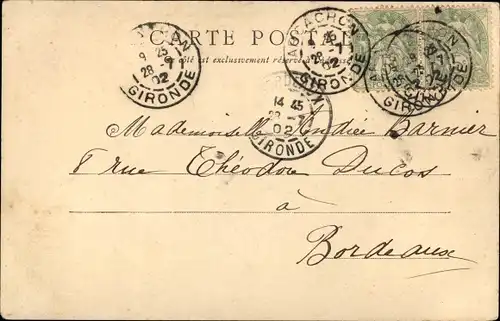 CARTE POSTALE
Ce côté est exclusivement réservé à
9 25
28
02
GIRONDE
ARCACHON
28
02
GIRONDE
GIRONDE
14 45
28 -7
02
GIRONDE
Mademoiselle Andrée Barnier
8 rue Théodore Ducos
à
Bordeaux